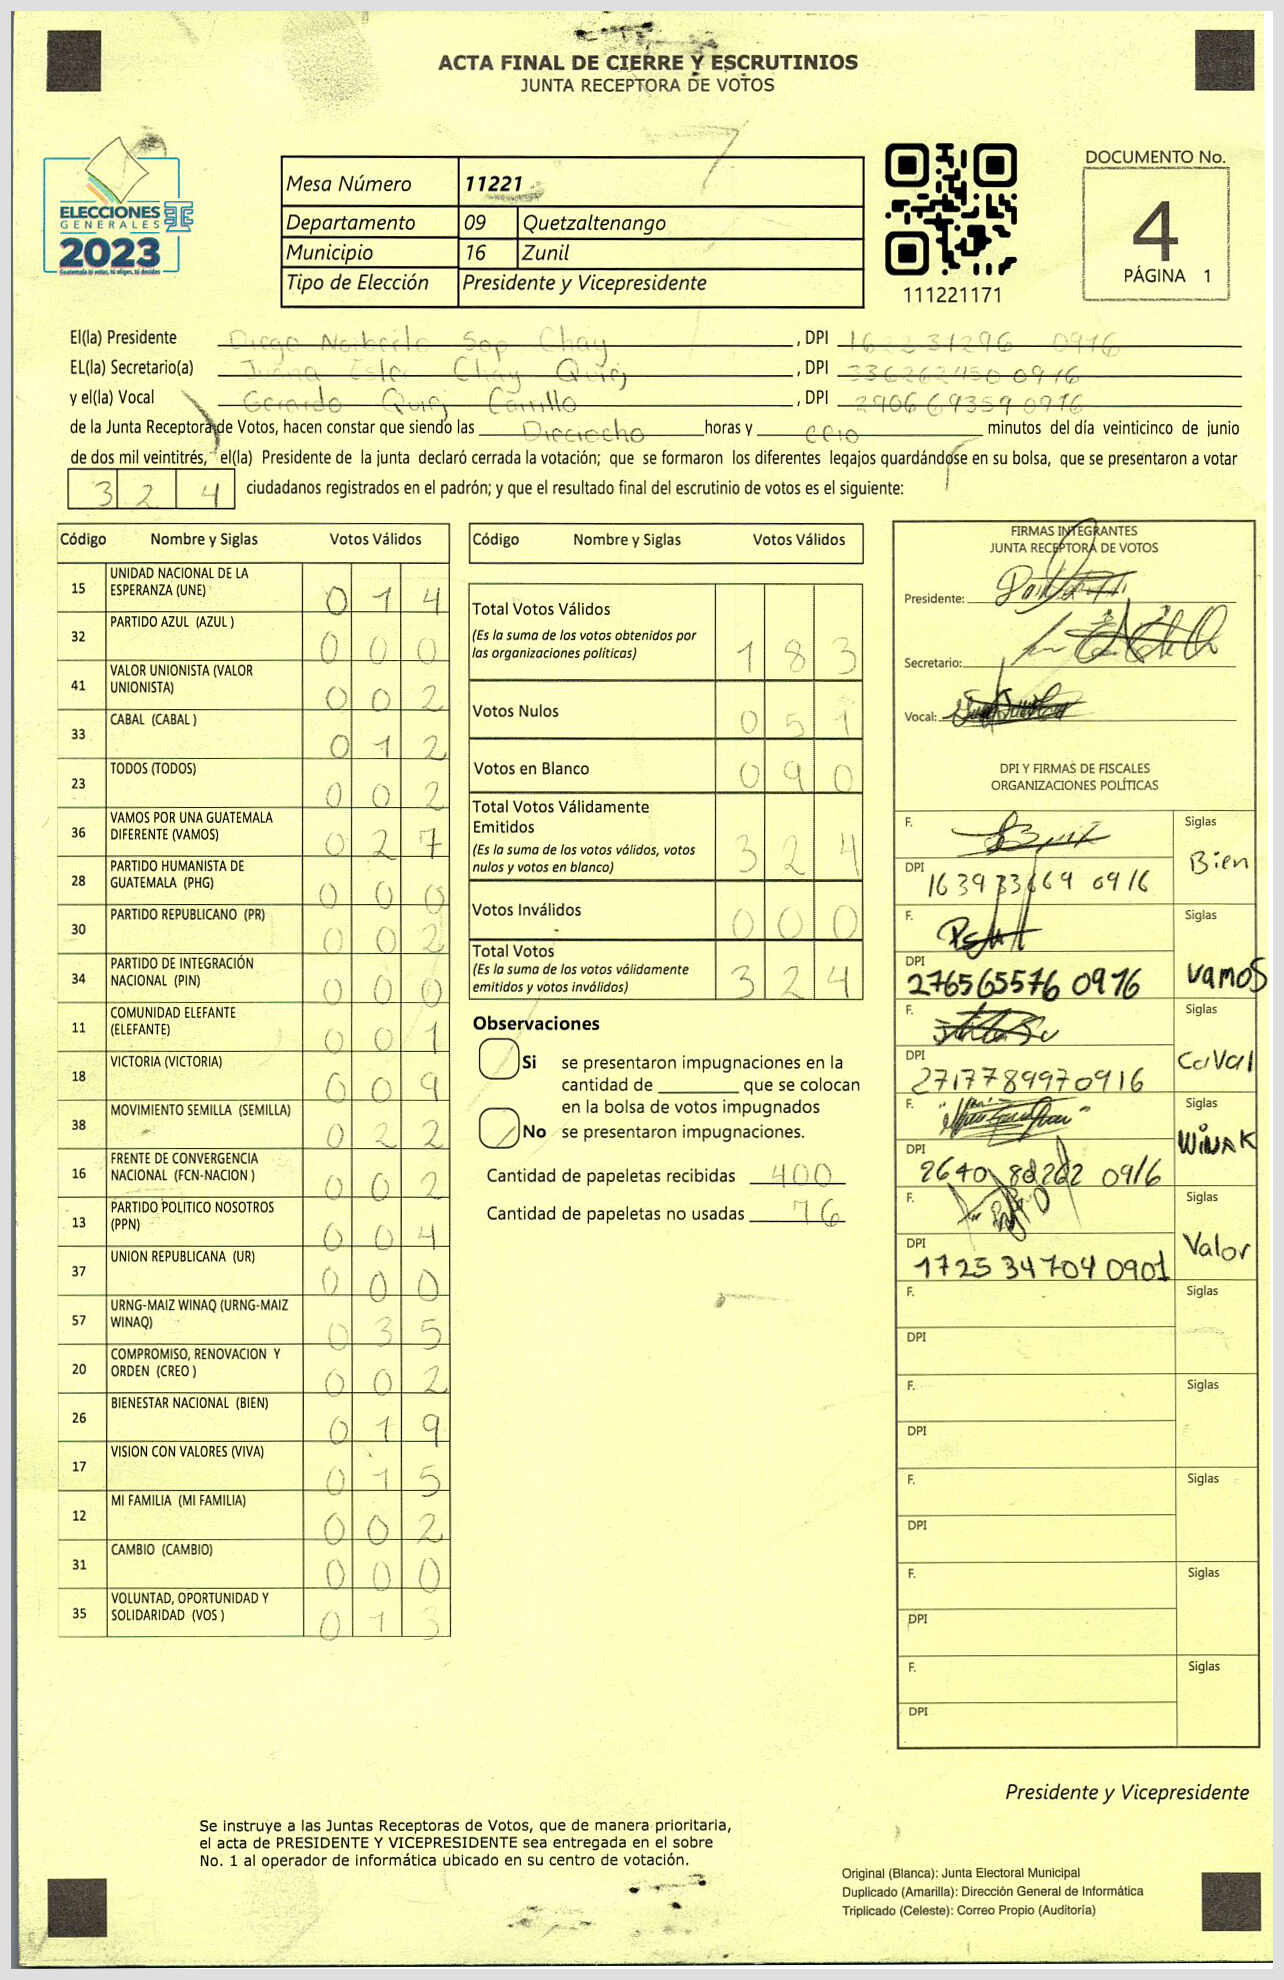 ACTA FINAL DE CIERRE Y ESCRUTINIOS
JUNTA RECEPTORA DE VOTOS
ELECCIONES
GENERALES
2023
Guatemala tú votas, tú eliges, tú decides
Mesa Número 11221
Departamento 09 Quetzaltenango
Municipio 16 Zunil
Tipo de Elección Presidente y Vicepresidente
111221171
DOCUMENTO No.
4
PÁGINA 1
El(la) Presidente Diego Norberto Sop Chay, DPI 0916
EL(la) Secretario(a) Juana Ester Chay Quiej, DPI 336262450 0916
y el(la) Vocal Gerardo Quiej Carrillo, DPI 290669359 0916
de la Junta Receptora de Votos, hacen constar que siendo las Dieciocho horas y cero minutos del día veinticinco de junio
de dos mil veintitrés, el(la) Presidente de la junta declaró cerrada la votación; que se formaron los diferentes legajos guardándose en su bolsa, que se presentaron a votar
3 2 4 ciudadanos registrados en el padrón; y que el resultado final del escrutinio de votos es el siguiente:
Código Nombre y Siglas Votos Válidos
15 UNIDAD NACIONAL DE LA ESPERANZA (UNE) 0 1 4
32 PARTIDO AZUL (AZUL ) 0 0 0
41 VALOR UNIONISTA (VALOR UNIONISTA) 0 0 2
33 CABAL (CABAL ) 0 1 2
23 TODOS (TODOS) 0 0 2
36 VAMOS POR UNA GUATEMALA DIFERENTE (VAMOS) 0 2 7
28 PARTIDO HUMANISTA DE GUATEMALA (PHG) 0 0 0
30 PARTIDO REPUBLICANO (PR) 0 0 2
34 PARTIDO DE INTEGRACIÓN NACIONAL (PIN) 0 0 0
11 COMUNIDAD ELEFANTE (ELEFANTE) 0 0 1
18 VICTORIA (VICTORIA) 0 0 9
38 MOVIMIENTO SEMILLA (SEMILLA) 0 2 2
16 FRENTE DE CONVERGENCIA NACIONAL (FCN-NACION ) 0 0 2
13 PARTIDO POLITICO NOSOTROS (PPN) 0 0 4
37 UNION REPUBLICANA (UR) 0 0 0
57 URNG-MAIZ WINAQ (URNG-MAIZ WINAQ) 0 3 5
20 COMPROMISO, RENOVACION Y ORDEN (CREO ) 0 0 2
26 BIENESTAR NACIONAL (BIEN) 0 1 9
17 VISION CON VALORES (VIVA) 0 1 5
12 MI FAMILIA (MI FAMILIA) 0 0 2
31 CAMBIO (CAMBIO) 0 0 0
35 VOLUNTAD, OPORTUNIDAD Y SOLIDARIDAD (VOS ) 0 1 3
Código Nombre y Siglas Votos Válidos
Total Votos Válidos 1 8 3
(Es la suma de los votos obtenidos por
las organizaciones políticas)
Votos Nulos 0 5 1
Votos en Blanco 0 9 0
Total Votos Válidamente
Emitidos 3 2 4
(Es la suma de los votos válidos, votos
nulos y votos en blanco)
Votos Inválidos 0 0 0
Total Votos 3 2 4
(Es la suma de los votos válidamente
emitidos y votos inválidos)
Observaciones
Si se presentaron impugnaciones en la
cantidad de ________ que se colocan
en la bolsa de votos impugnados
No se presentaron impugnaciones.
Cantidad de papeletas recibidas 400
Cantidad de papeletas no usadas 76
FIRMAS INTEGRANTES
JUNTA RECEPTORA DE VOTOS
Presidente:
Secretario:
Vocal:
DPI Y FIRMAS DE FISCALES
ORGANIZACIONES POLÍTICAS
F. Siglas Bien
DPI 163933669 0916
F. Siglas vamos
DPI 276565576 0916
F. Siglas CaVal
DPI 2717789970916
F. Siglas WiNAK
DPI 2640 88262 0916
F. Siglas Valor
DPI 1725 34704 0901
F. Siglas
DPI
F. Siglas
DPI
F. Siglas
DPI
F. Siglas
DPI
F. Siglas
DPI
Presidente y Vicepresidente
Se instruye a las Juntas Receptoras de Votos, que de manera prioritaria,
el acta de PRESIDENTE Y VICEPRESIDENTE sea entregada en el sobre
No. 1 al operador de informática ubicado en su centro de votación.
Original (Blanca): Junta Electoral Municipal
Duplicado (Amarilla): Dirección General de Informática
Triplicado (Celeste): Correo Propio (Auditoría)